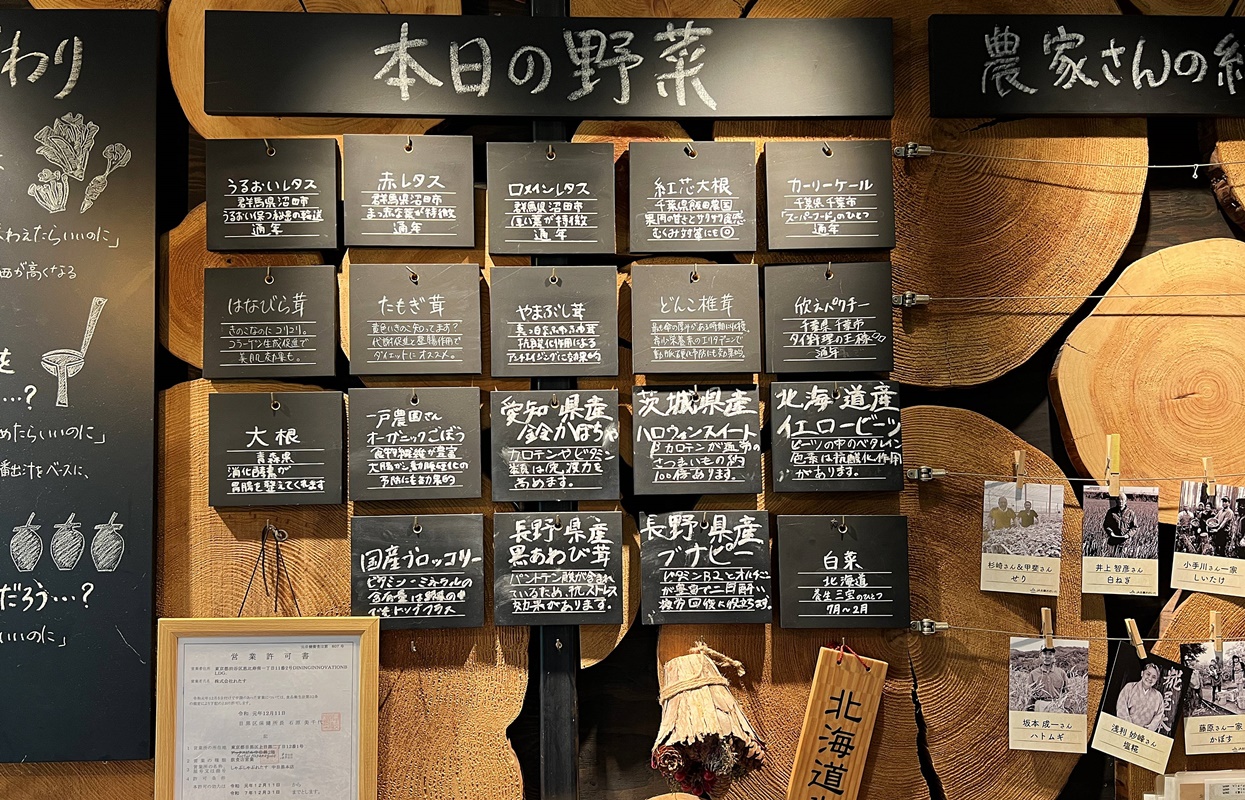 わり
わえたらいいのに」
が高くなる
を
…?
めたらいいのに」
出汁をベースに、
だろう…?
いいのに」
本日の野菜
農家さんの
うるおいレタス
群馬県沼田市
うるおい保つ秘密の輸送
通年
赤レタス
群馬県沼田市
まっ赤な葉が特徴
通年
ロメインレタス
群馬県沼田市
厚い葉が特徴
通年
紅芯大根
千葉県飯田農園
果肉の甘さとサクサク食感
むくみ対策にも◎
カーリーケール
千葉県千葉市
「スーパーフード」のひとつ
通年
はなびら茸
きのこなのにコリコリ。
コラーゲン生成促進で
美肌効果も。
たもぎ茸
黄色いきのこ知ってます?
代謝促進と整腸作用で
ダイエットにオススメ。
やまぶし茸
真っ白なふわふわ茸
抗酸化作用による
アンチエイジングに効果的
どんこ椎茸
希少栄養素のエリタデニンで
動脈硬化予防にも効果的
欣えパクチー
千葉県千葉市
タイ料理の王様
通年
大根
青森県
消化酵素が
胃腸を整えてくれます
一戸農園さん
オーガニックごぼう
食物繊維が豊富
大腸がん動脈硬化の
予防にも効果的
愛知県産
鈴かぼちゃ
カロテンやビタミン
類は免疫力を
高めます。
茨城県産
ハロウィンスイート
βカロテンが通常の
さつまいもの約
100倍あります。
北海道産
イエロービーツ
ビーツの中のベタレイン
色素は抗酸化作用
があります。
国産ブロッコリー
ビタミン・ミネラルの
含有量は野菜の中
でもトップクラス
長野県産
黒あわび茸
パントテン酸が含まれ
ているため、抗ストレス
効果があります。
長野県産
ブナピー
ビタミンB2とオルチニン
が豊富で二日酔い
疲労回復に役立ちます。
白菜
北海道
養生三宝のひとつ
7月〜2月
杉崎さん&甲斐さん
せり
井上 智彦さん
白ねぎ
小手川さん一家
しいたけ
坂本 成一さん
ハトムギ
浅利 妙峰さん
塩糀
藤原さん一家
かぼす
営業許可書
株式会社れたす
令和元年12月11日
目黒区保健所長
しゃぶしゃぶれたす 中目黒本店
令和 元年12月11日 から
令和 7年12月31日 まで
北海道